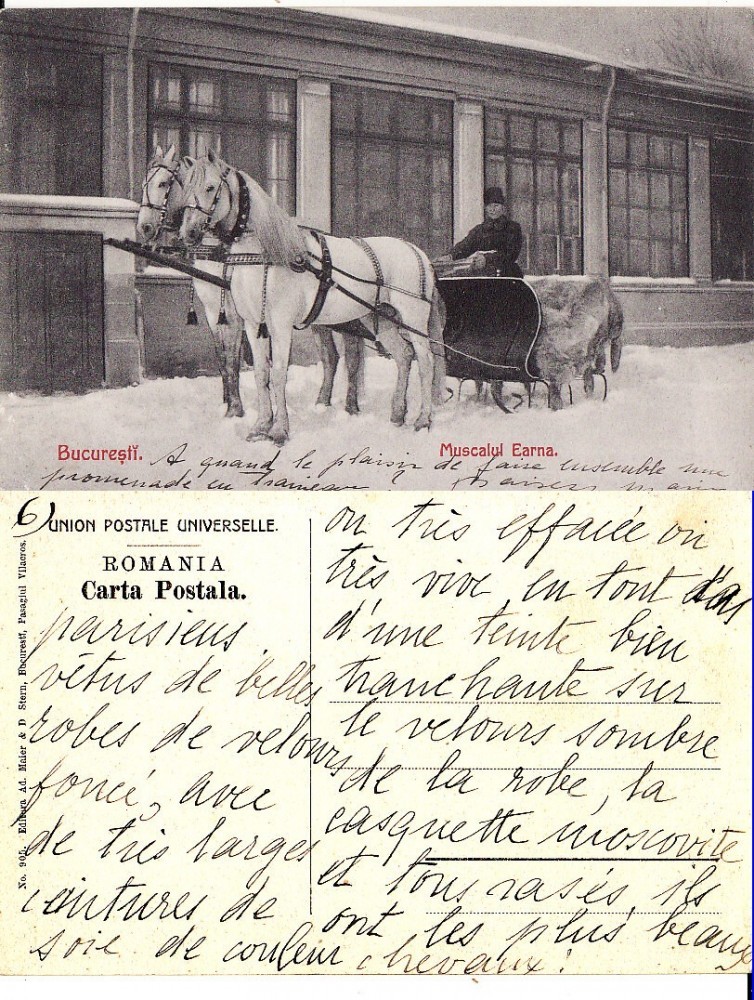 Bucureștĭ.
Muscalul Earna.
A quand le plaisir de faire ensemble une
promenade en traineau ?
6)
UNION POSTALE UNIVERSELLE.
ROMANIA
Carta Postala.
No. 901. Editura Ad. Maier & D Stern, Bucurestĭ, Pasagiul Vilacros.
parisiens
vêtus de belles
robes de velours
foncé, avec
de très larges
ceintures de
soie de couleur
ou très effacée ou
très vive, en tout cas
d'une teinte bien
tranchante sur
le velours sombre
de la robe, la
casquette moscovite
et tous rasés, ils
ont les plus beaux
chevaux!